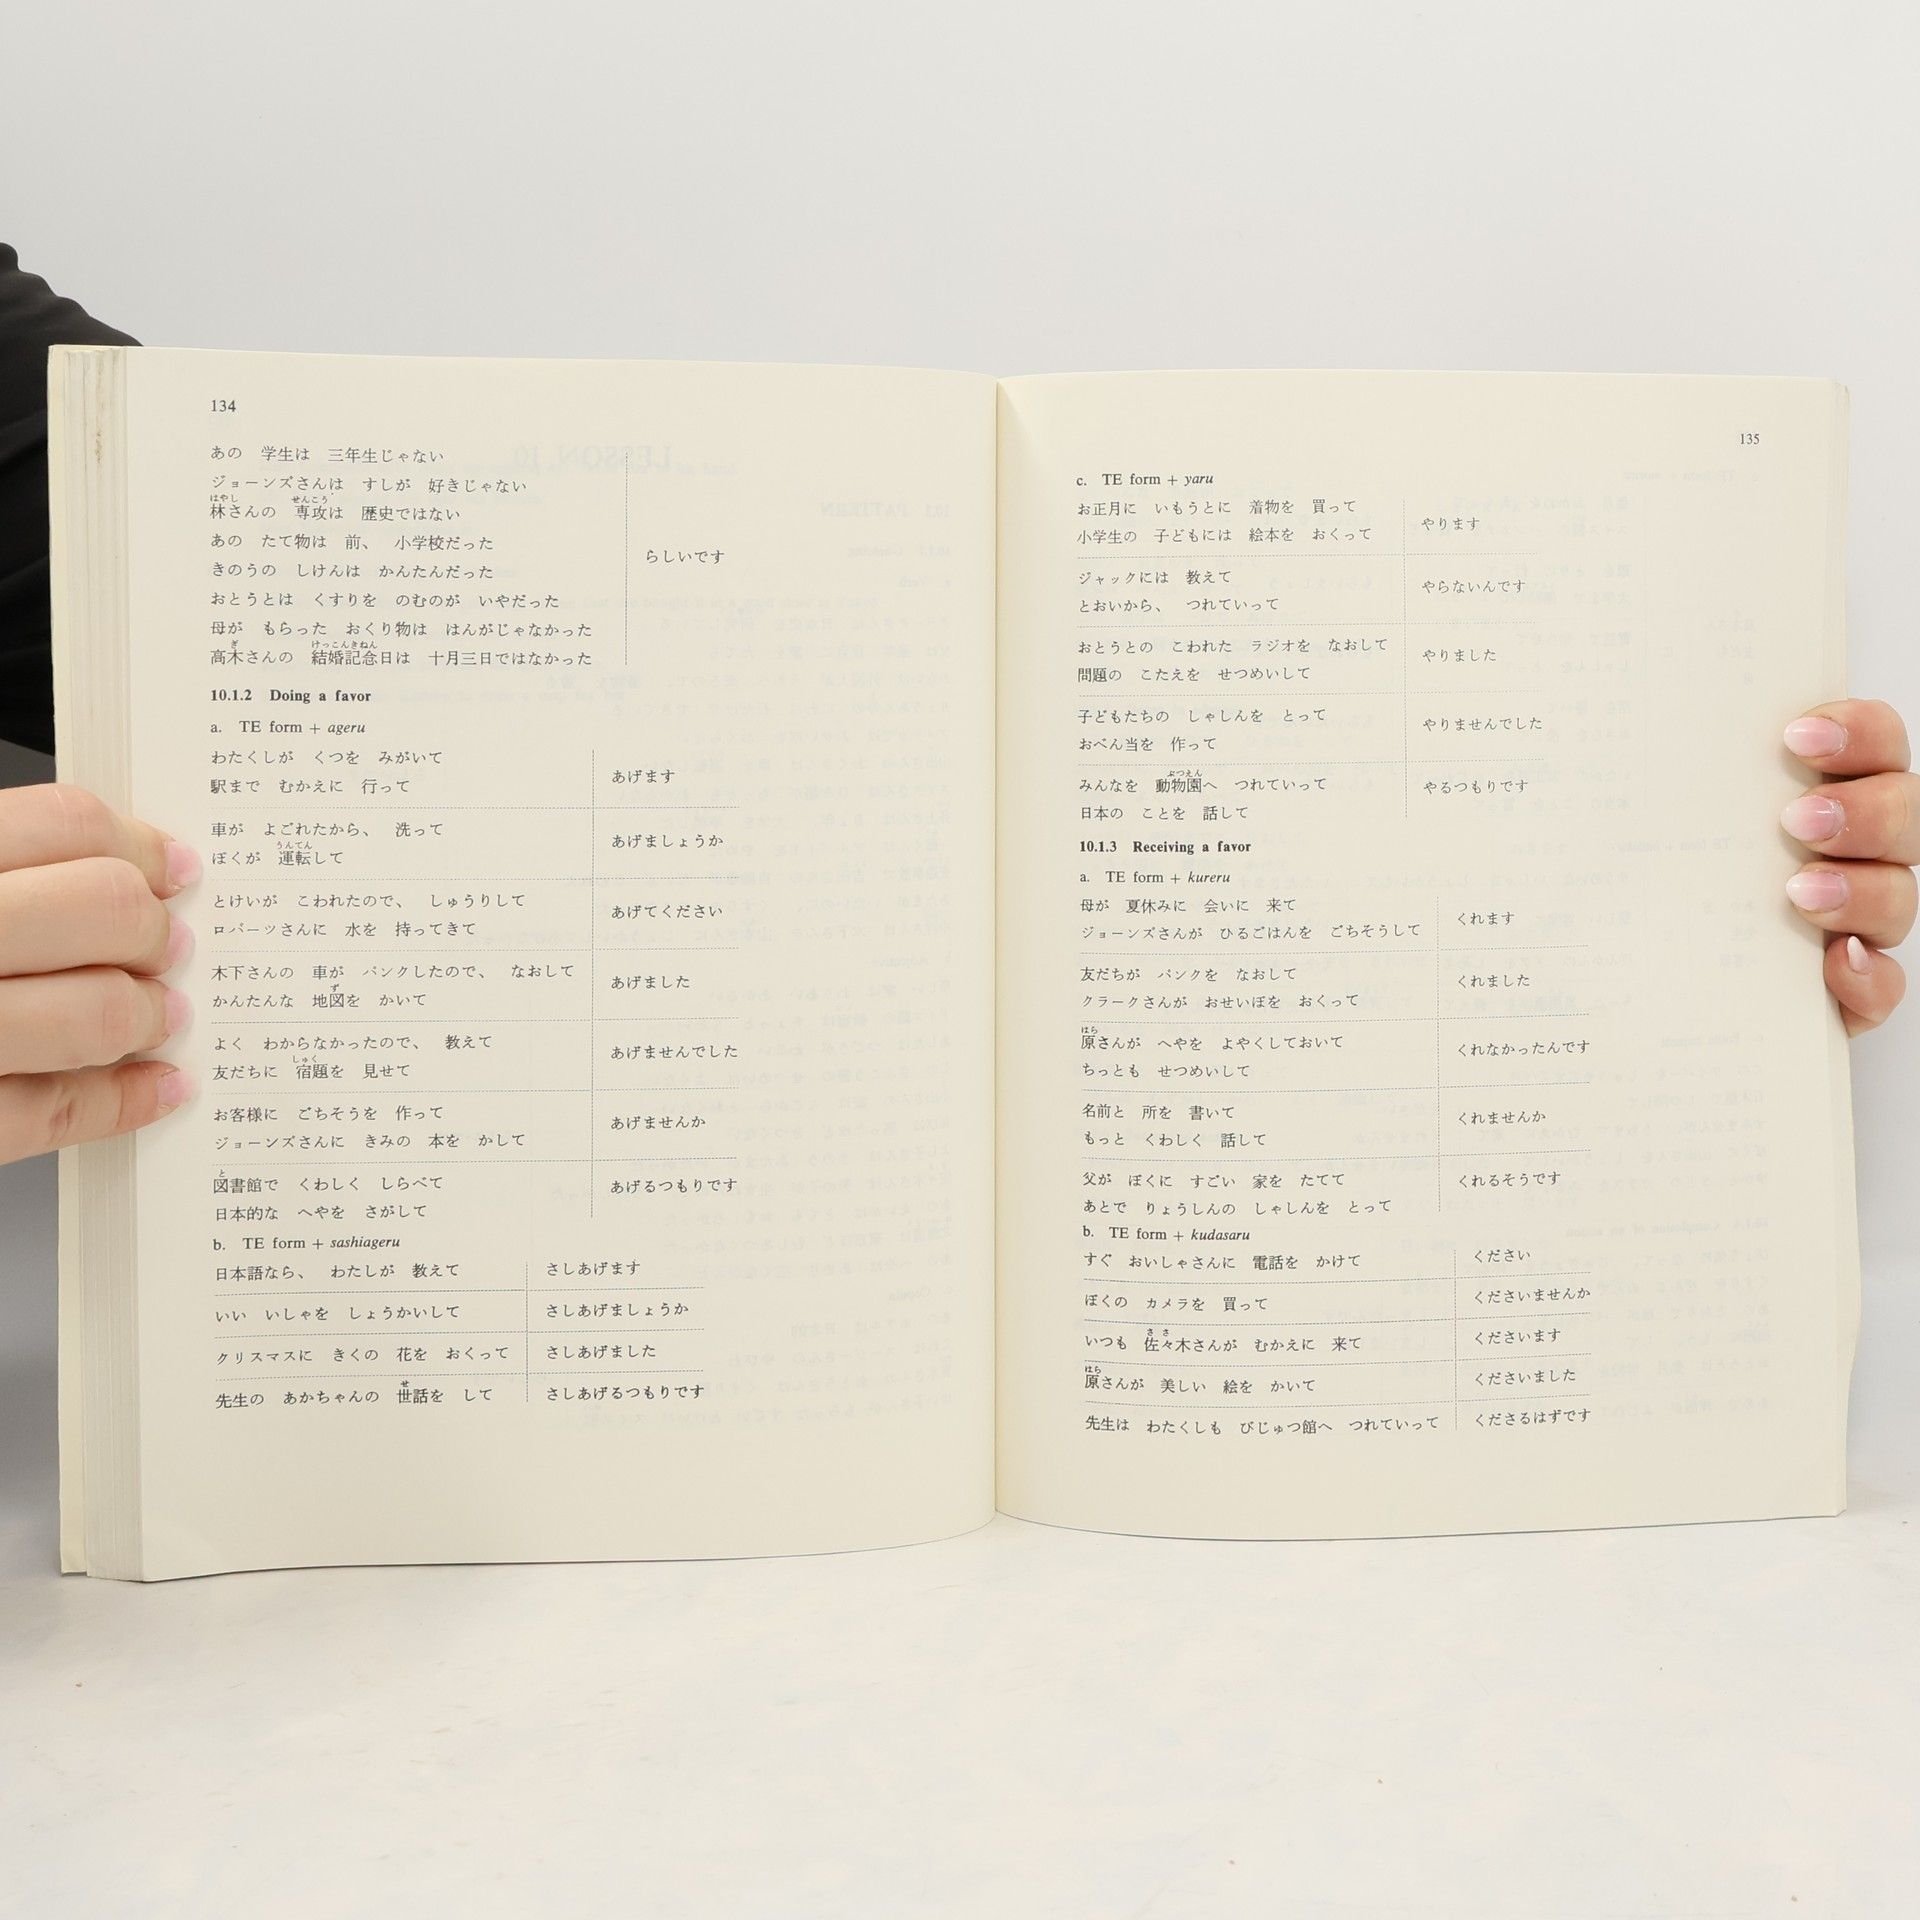 134
あの 学生は 三年生じゃない
ジョーンズさんは すしが 好きじゃない
はやし せんこう
林さんの 専攻は 歴史ではない
あの たて物は 前、 小学校だった
らしいです
きのうの しけんは かんたんだった
おとうとは くすりを のむのが いやだった
母が もらった おくり物は はんがじゃなかった
ぎ けっこんきねん
高木さんの 結婚記念日は 十月三日ではなかった
10.1.2 Doing a favor
a. TE form + ageru
わたくしが くつを みがいて
駅まで むかえに 行って
あげます
車が よごれたから、 洗って
うんてん
ぼくが 運転して
あげましょうか
とけいが こわれたので、 しゅうりして
ロバーツさんに 水を 持ってきて
あげてください
木下さんの 車が パンクしたので、 なおして
ず
かんたんな 地図を かいて
あげました
よく わからなかったので、 教えて
しゅく
友だちに 宿題を 見せて
あげませんでした
お客様に ごちそうを 作って
ジョーンズさんに きみの 本を かして
あげませんか
と
図書館で くわしく しらべて
日本的な へやを さがして
あげるつもりです
b. TE form + sashiageru
日本語なら、 わたしが 教えて さしあげます
いい いしゃを しょうかいして さしあげましょうか
クリスマスに きくの 花を おくって さしあげました
せ
先生の あかちゃんの 世話を して さしあげるつもりです
135
c. TE form + yaru
お正月に いもうとに 着物を 買って
小学生の 子どもには 絵本を おくって
やります
ジャックには 教えて
とおいから、 つれていって
やらないんです
おとうとの こわれた ラジオを なおして
問題の こたえを せつめいして
やりました
子どもたちの しゃしんを とって
おべん当を 作って
やりませんでした
ぶつえん
みんなを 動物園へ つれていって
日本の ことを 話して
やるつもりです
10.1.3 Receiving a favor
a. TE form + kureru
母が 夏休みに 会いに 来て
ジョーンズさんが ひるごはんを ごちそうして
くれます
友だちが パンクを なおして
クラークさんが おせいぼを おくって
くれました
はら
原さんが へやを よやくしておいて
ちっとも せつめいして
くれなかったんです
名前と 所を 書いて
もっと くわしく 話して
くれませんか
父が ぼくに すごい 家を たてて
あとで りょうしんの しゃしんを とって
くれるそうです
b. TE form + kudasaru
すぐ おいしゃさんに 電話を かけて ください
ぼくの カメラを 買って くださいませんか
ささ
いつも 佐々木さんが むかえに 来て くださいます
はら
原さんが 美しい 絵を かいて くださいました
先生は わたくしも びじゅつ館へ つれていって くださるはずです